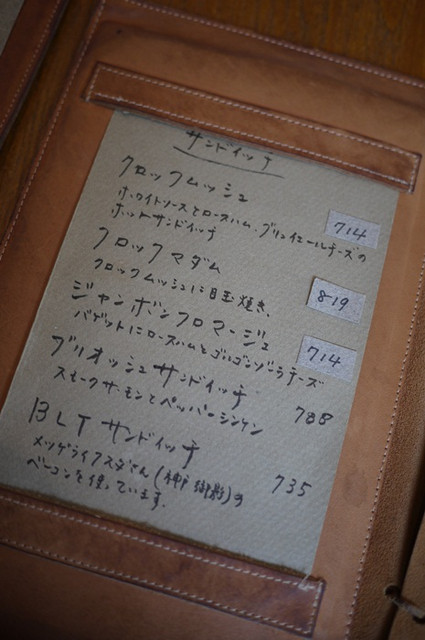 サンドイッチ
クロックムッシュ
ホワイトソースとロースハム、グリュイエールチーズの
ホットサンドイッチ
714
クロックマダム
クロックムッシュに目玉焼き、
819
ジャンボンフロマージュ
バゲットにロースハムとゴルゴンゾーラチーズ
714
ブリオッシュサンドイッチ
スモークサーモンとペッパーシンケン
788
BLTサンドイッチ
メツゲライクスダさん(神戸御影)の
ベーコンを使っています.
735